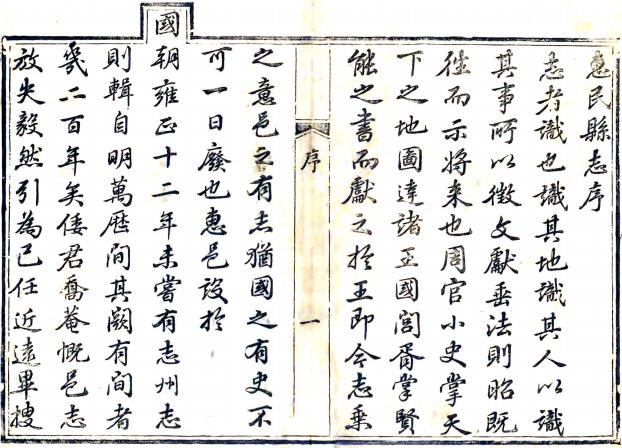 惠民縣志序
志者識也識其地識其人以識
其事所以徵文獻垂法則昭既
徃而示將来也周官小史掌天
下之地圖達諸王國閭胥掌賢
能之書而獻之扵王即今志乗
序
一
之意邑之有志猶國之有史不
可一日廢也惠邑設扵
國
朝雍正十二年未嘗有志州志
則輯自明萬厯間其闕有間者
幾二百年矣倭君喬菴慨邑志
放失毅然引為己任近遠畢搜